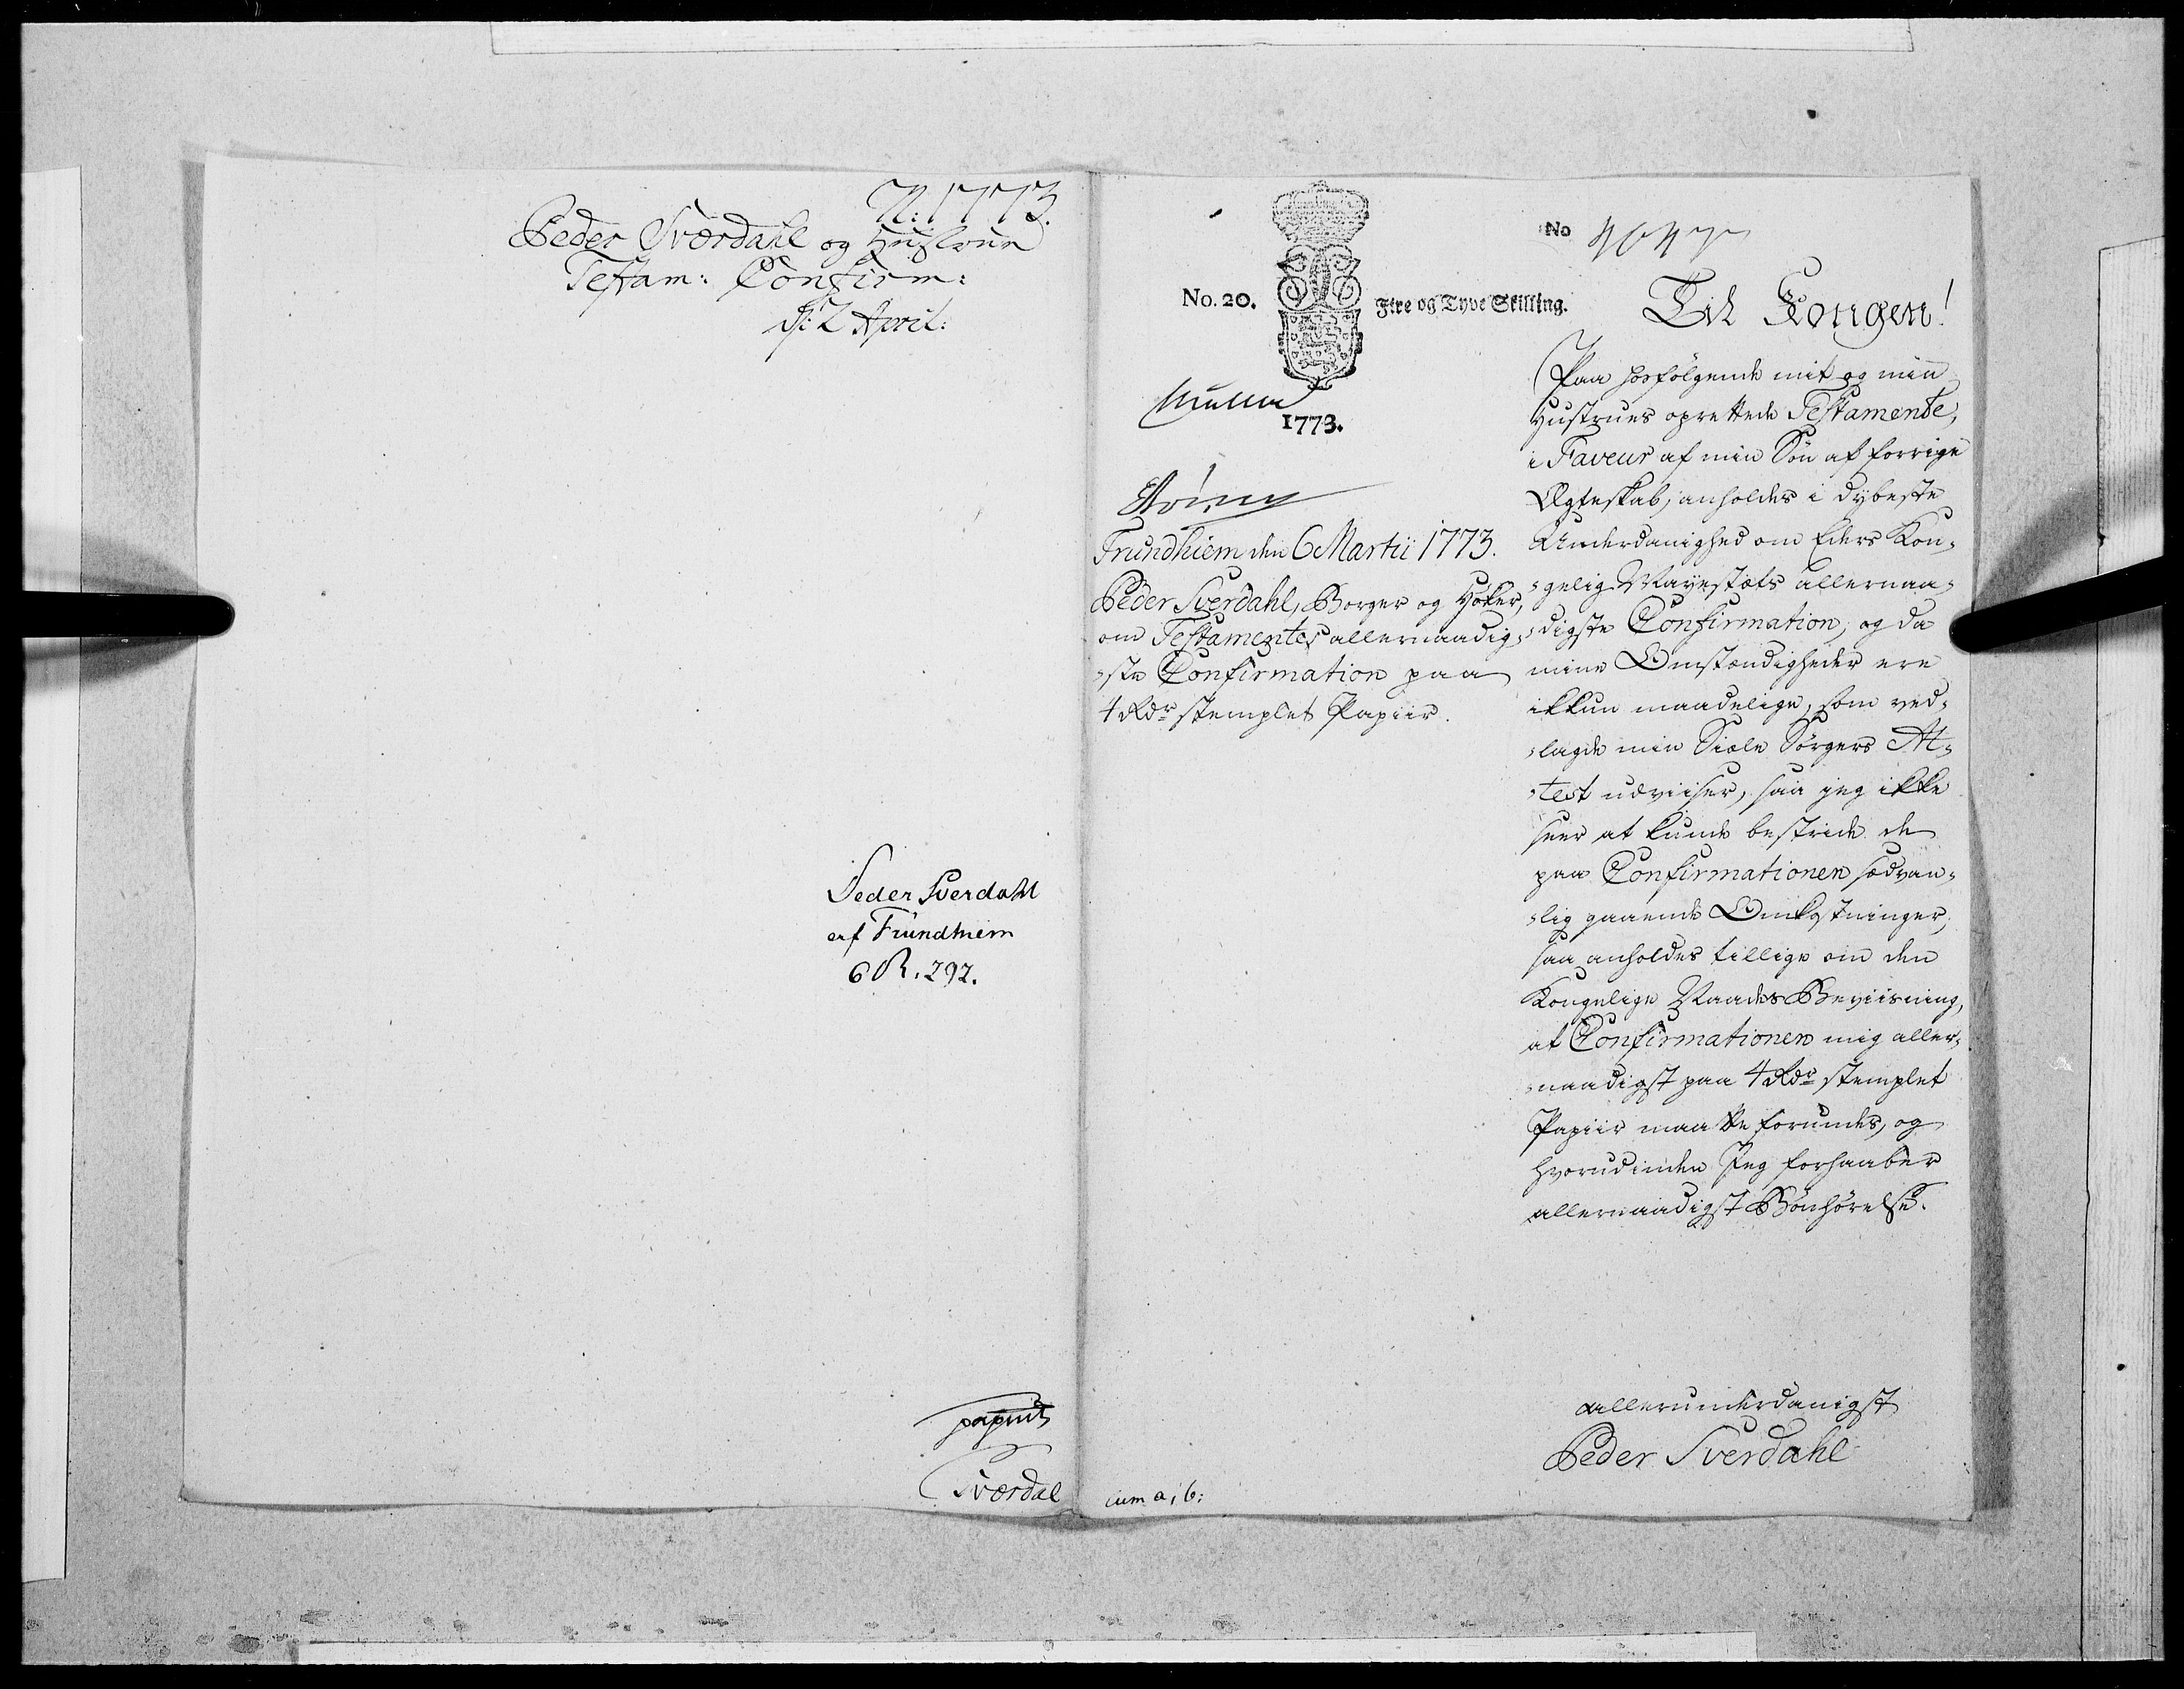 N: 1773.
Peder Sværdahl og Hustrue
Testam: Confirm:
d: 2 April:
Peder Sverdahl
af Trundhiem
6 R. 292.
Sværdal
No. 20.
Fire og Tyve Skilling.
1773.
Trundhiem den 6 Martii 1773.
Peder Sverdahl, Borger og Høker,
om Testamentes allernaadig-
ste Confirmation paa
4 Rdr stemplet Papiir.
cum a, b:
No
Til Kongen!
Paa hosfølgende mit og min
Hustrues oprettede Testamente,
i Faveur af min Søn af forrige
Ægteskab, anholdes i dybeste
Underdanighed om Eders Kon-
gelig Mayestæts allernaa-
digste Confirmation; og da
mine Omstændigheder ere
ikkun maadelige, som ved-
lagde min Siæle Sørgers At-
test udviiser, saa jeg ikke
seer at kunde bestride de
paa Confirmationen sædvan-
lig gaaende Omkostninger,
saa anholdes tillige om den
Kongelige Naades Beviisning,
at Confirmationen mig aller-
naadigst paa 4 Rdr stemplet
Papiir maatte forundes, og
hvorudinden Jeg forhaaber
allernaadigst Bønhørelse.
allerunderdanigst
Peder Sverdahl